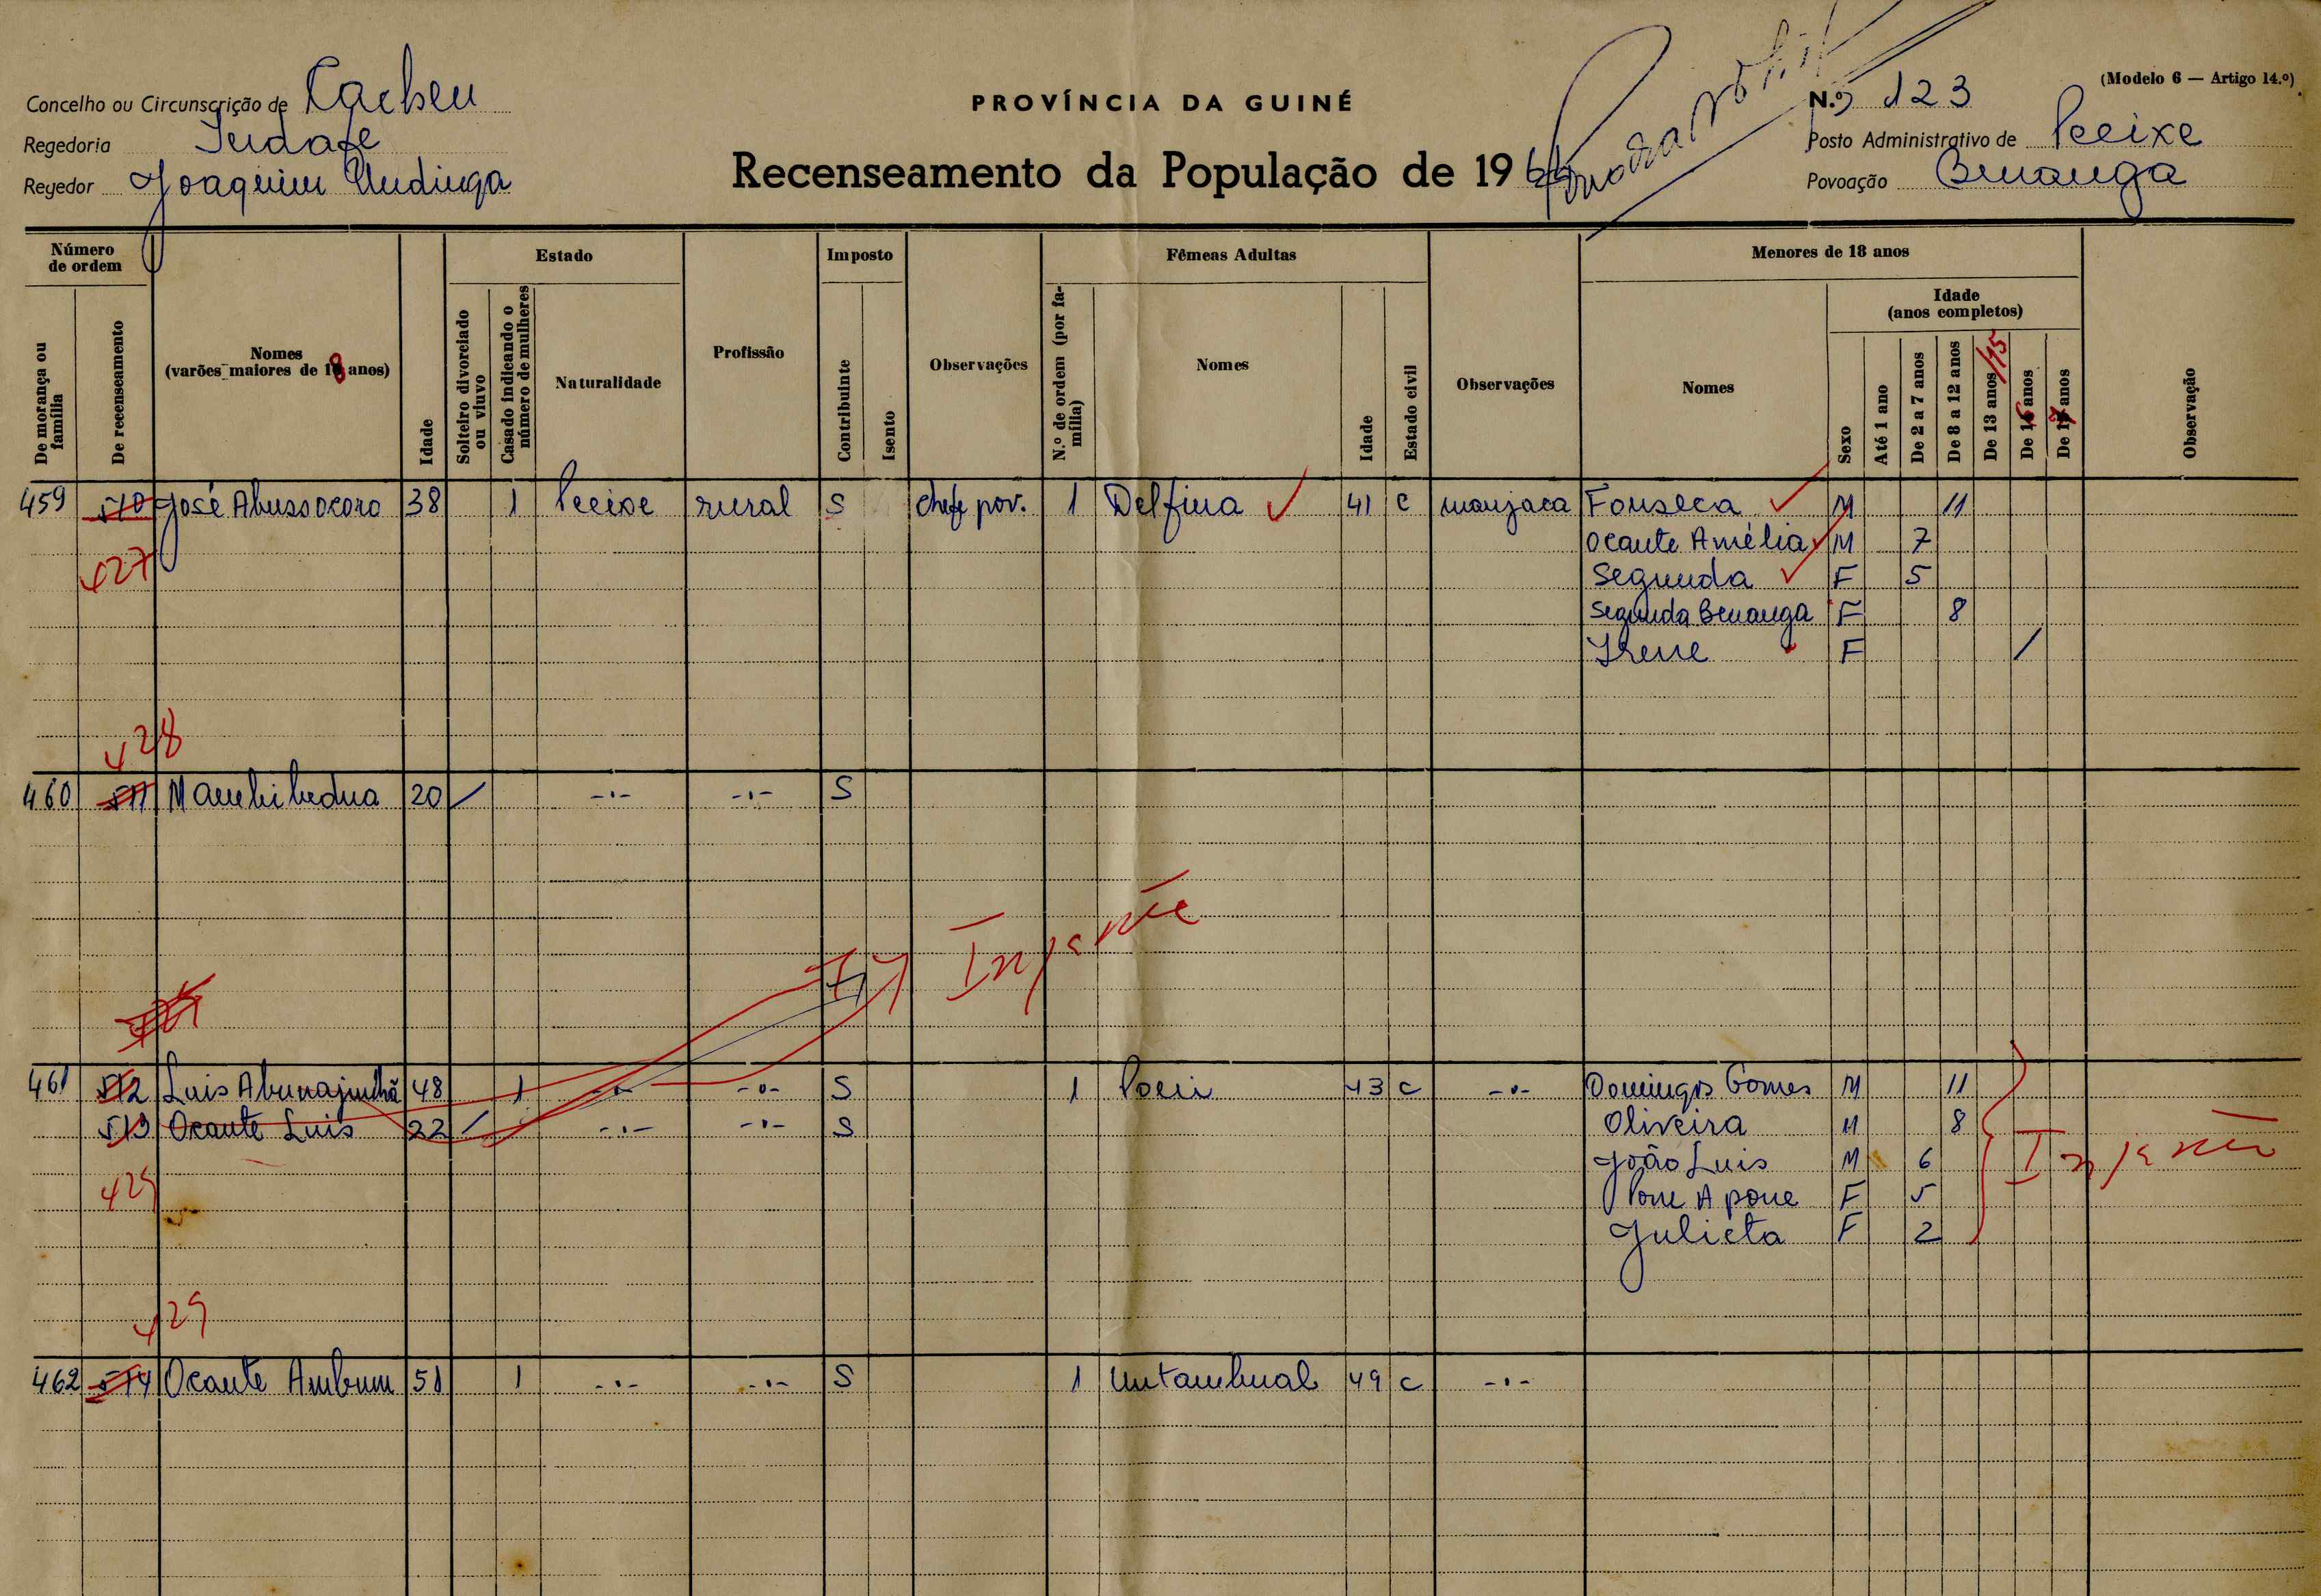 (Modelo 6 — Artigo 14.º)
Concelho ou Circunscrição de Cacheu
PROVÍNCIA DA GUINÉ
N.º 123
Regedoria
Posto Administrativo de Pecixe
Regedor Joaquim Undinga
Recenseamento da População de 19
Povoação Benanga
Número de ordem
De morança ou família
De recenseamento
Nomes
(varões maiores de 18 anos)
Idade
Estado
Solteiro divorciado ou viuvo
Casado indicando o número de mulheres
Naturalidade
Profissão
Imposto
Contribuinte
Isento
Observações
Fêmeas Adultas
N.º de ordem (por família)
Nomes
Idade
Estado civil
Observações
Menores de 18 anos
Nomes
Idade
(anos completos)
Sexo
Até 1 ano
De 2 a 7 anos
De 8 a 12 anos
De 13 anos /15
De 16 anos
De 17 anos
Observação
459 510 José Abussocoro 38 1 Pecixe rural S chefe pov. 1 Delfina 41 C manjaca Fonseca M 11
Ocante Amélia M 7
427
Segunda F 5
Segunda Benanga F 8
Irene F /
428
460 511 20 / -·- -·- S
461 512 Luis 48 1 -·- -·- S 1 43 C -·- Domingos Gomes M 11
513 Ocante Luis 22 / -·- -·- S Oliveira M 8
João Luis M 6
429
Pone Apone F 5
Julieta F 2
429
462 514 Ocante Ambum 51 1 -·- -·- S 1 Untambual 49 C -·-